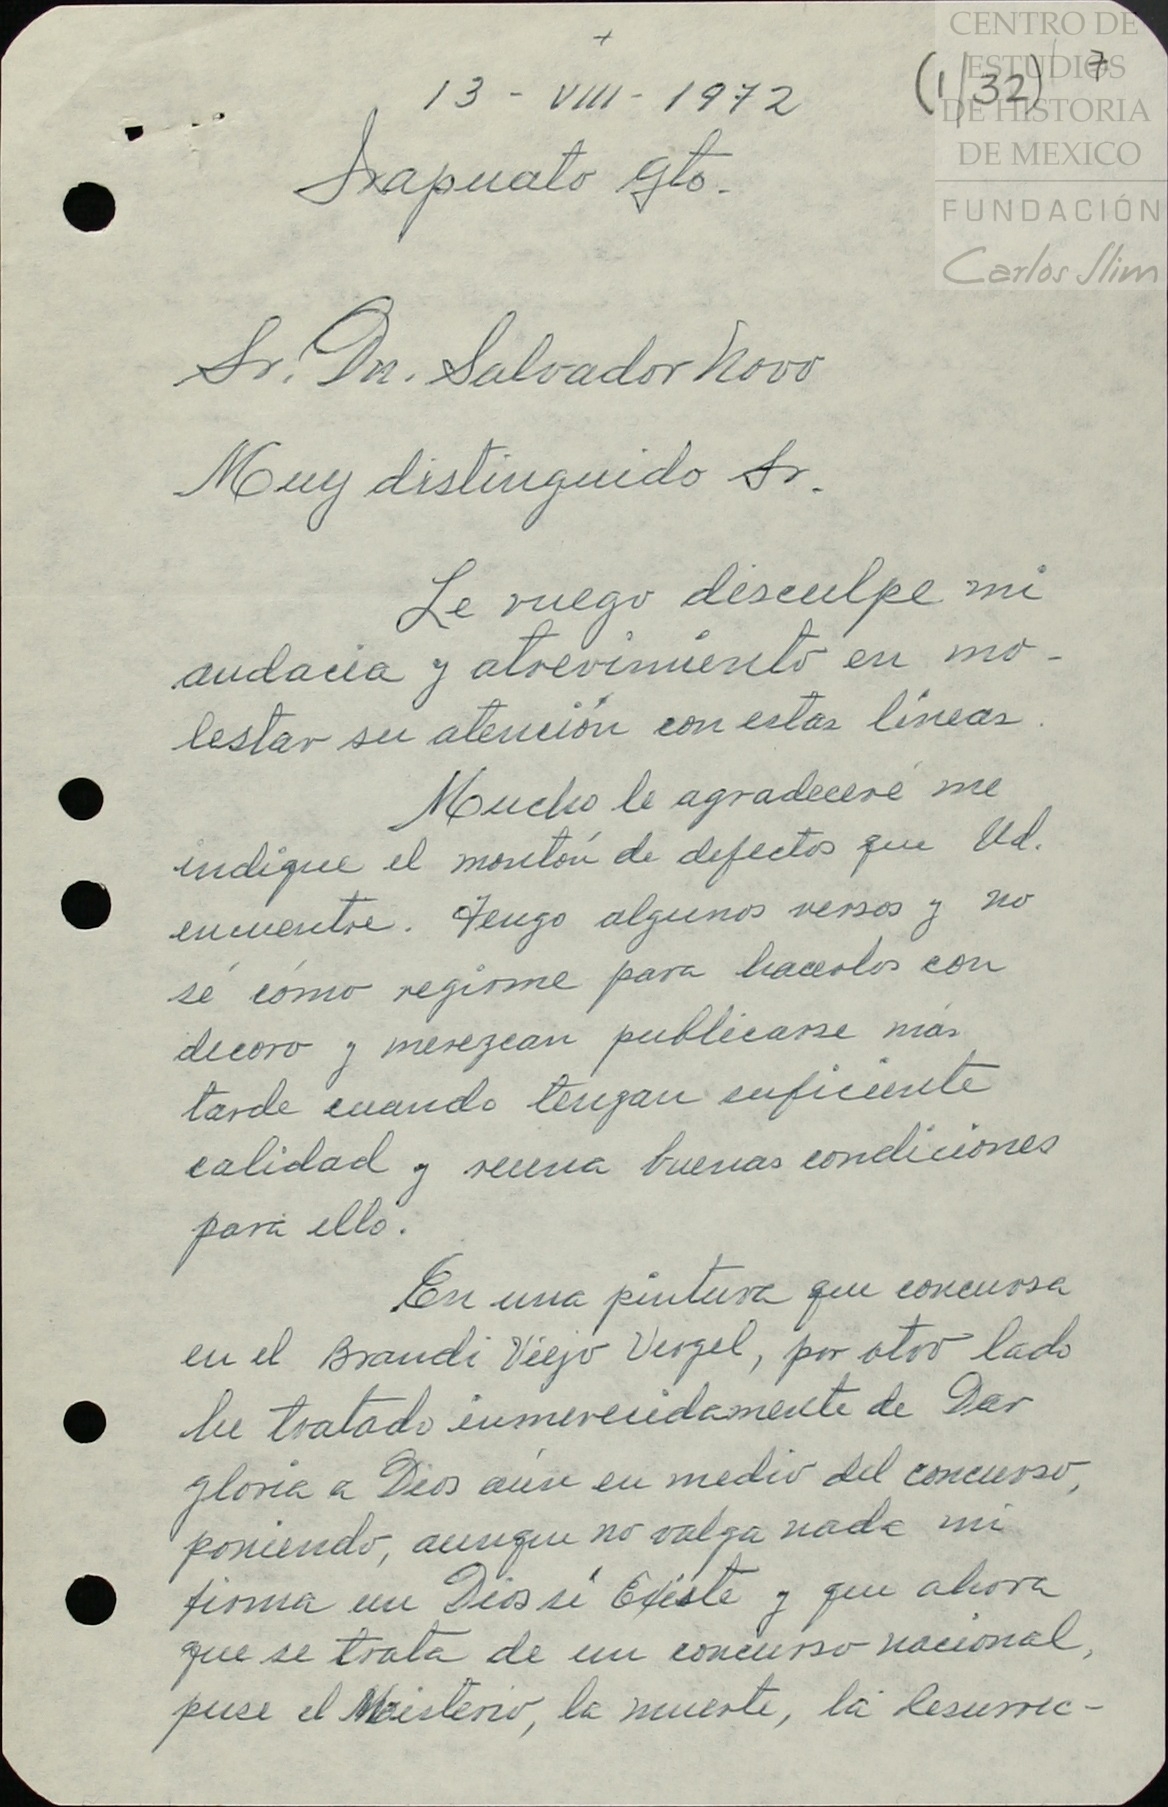 +
13 - VIII - 1972
(1/32) 7
CENTRO DE
ESTUDIOS
DE HISTORIA
DE MEXICO
FUNDACIÓN
Carlos Slim
Irapuato Gto.
Sr. Dn. Salvador Novo
Muy distinguido Sr.
Le ruego disculpe mi
audacia y atrevimiento en mo-
lestar su atención con estas líneas.
Mucho le agradeceré me
indique el montón de defectos que Ud.
encuentre. Tengo algunos versos y no
sé cómo regirme para hacerlos con
decoro y merezcan publicarse más
tarde cuando tengan suficiente
calidad y reuna buenas condiciones
para ello.
En una pintura que concursa
en el Brandi Viejo Vergel, por otro lado
he tratado inmerecidamente de Dar
gloria a Dios aún en medio del concurso,
poniendo, aunque no valga nada mi
firma un Dios sí Existe y que ahora
que se trata de un concurso nacional,
puse el Misterio, la muerte, la Resurrec-